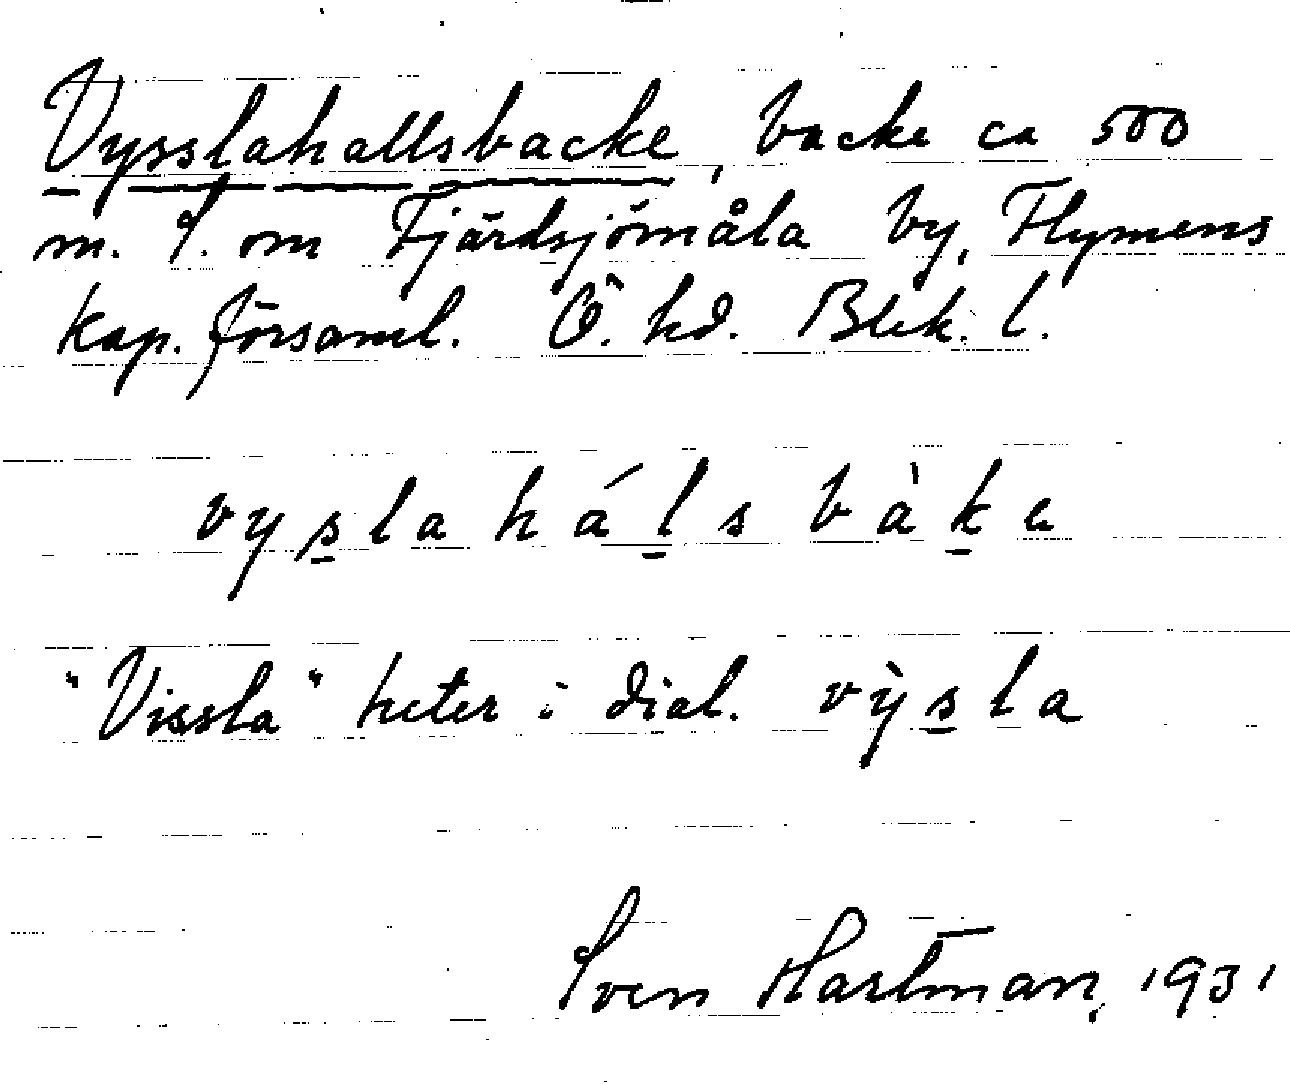 Vysslahallsbacke, backe ca 500
m. S. om Fjärdsjömåla by, Flymens
kap. församl. Ö. hd. Blek. l.
vys̲lahál̲sbàk̲e
"Vissla" heter i dial. vỳs̲la
Sven Hartman, 1931